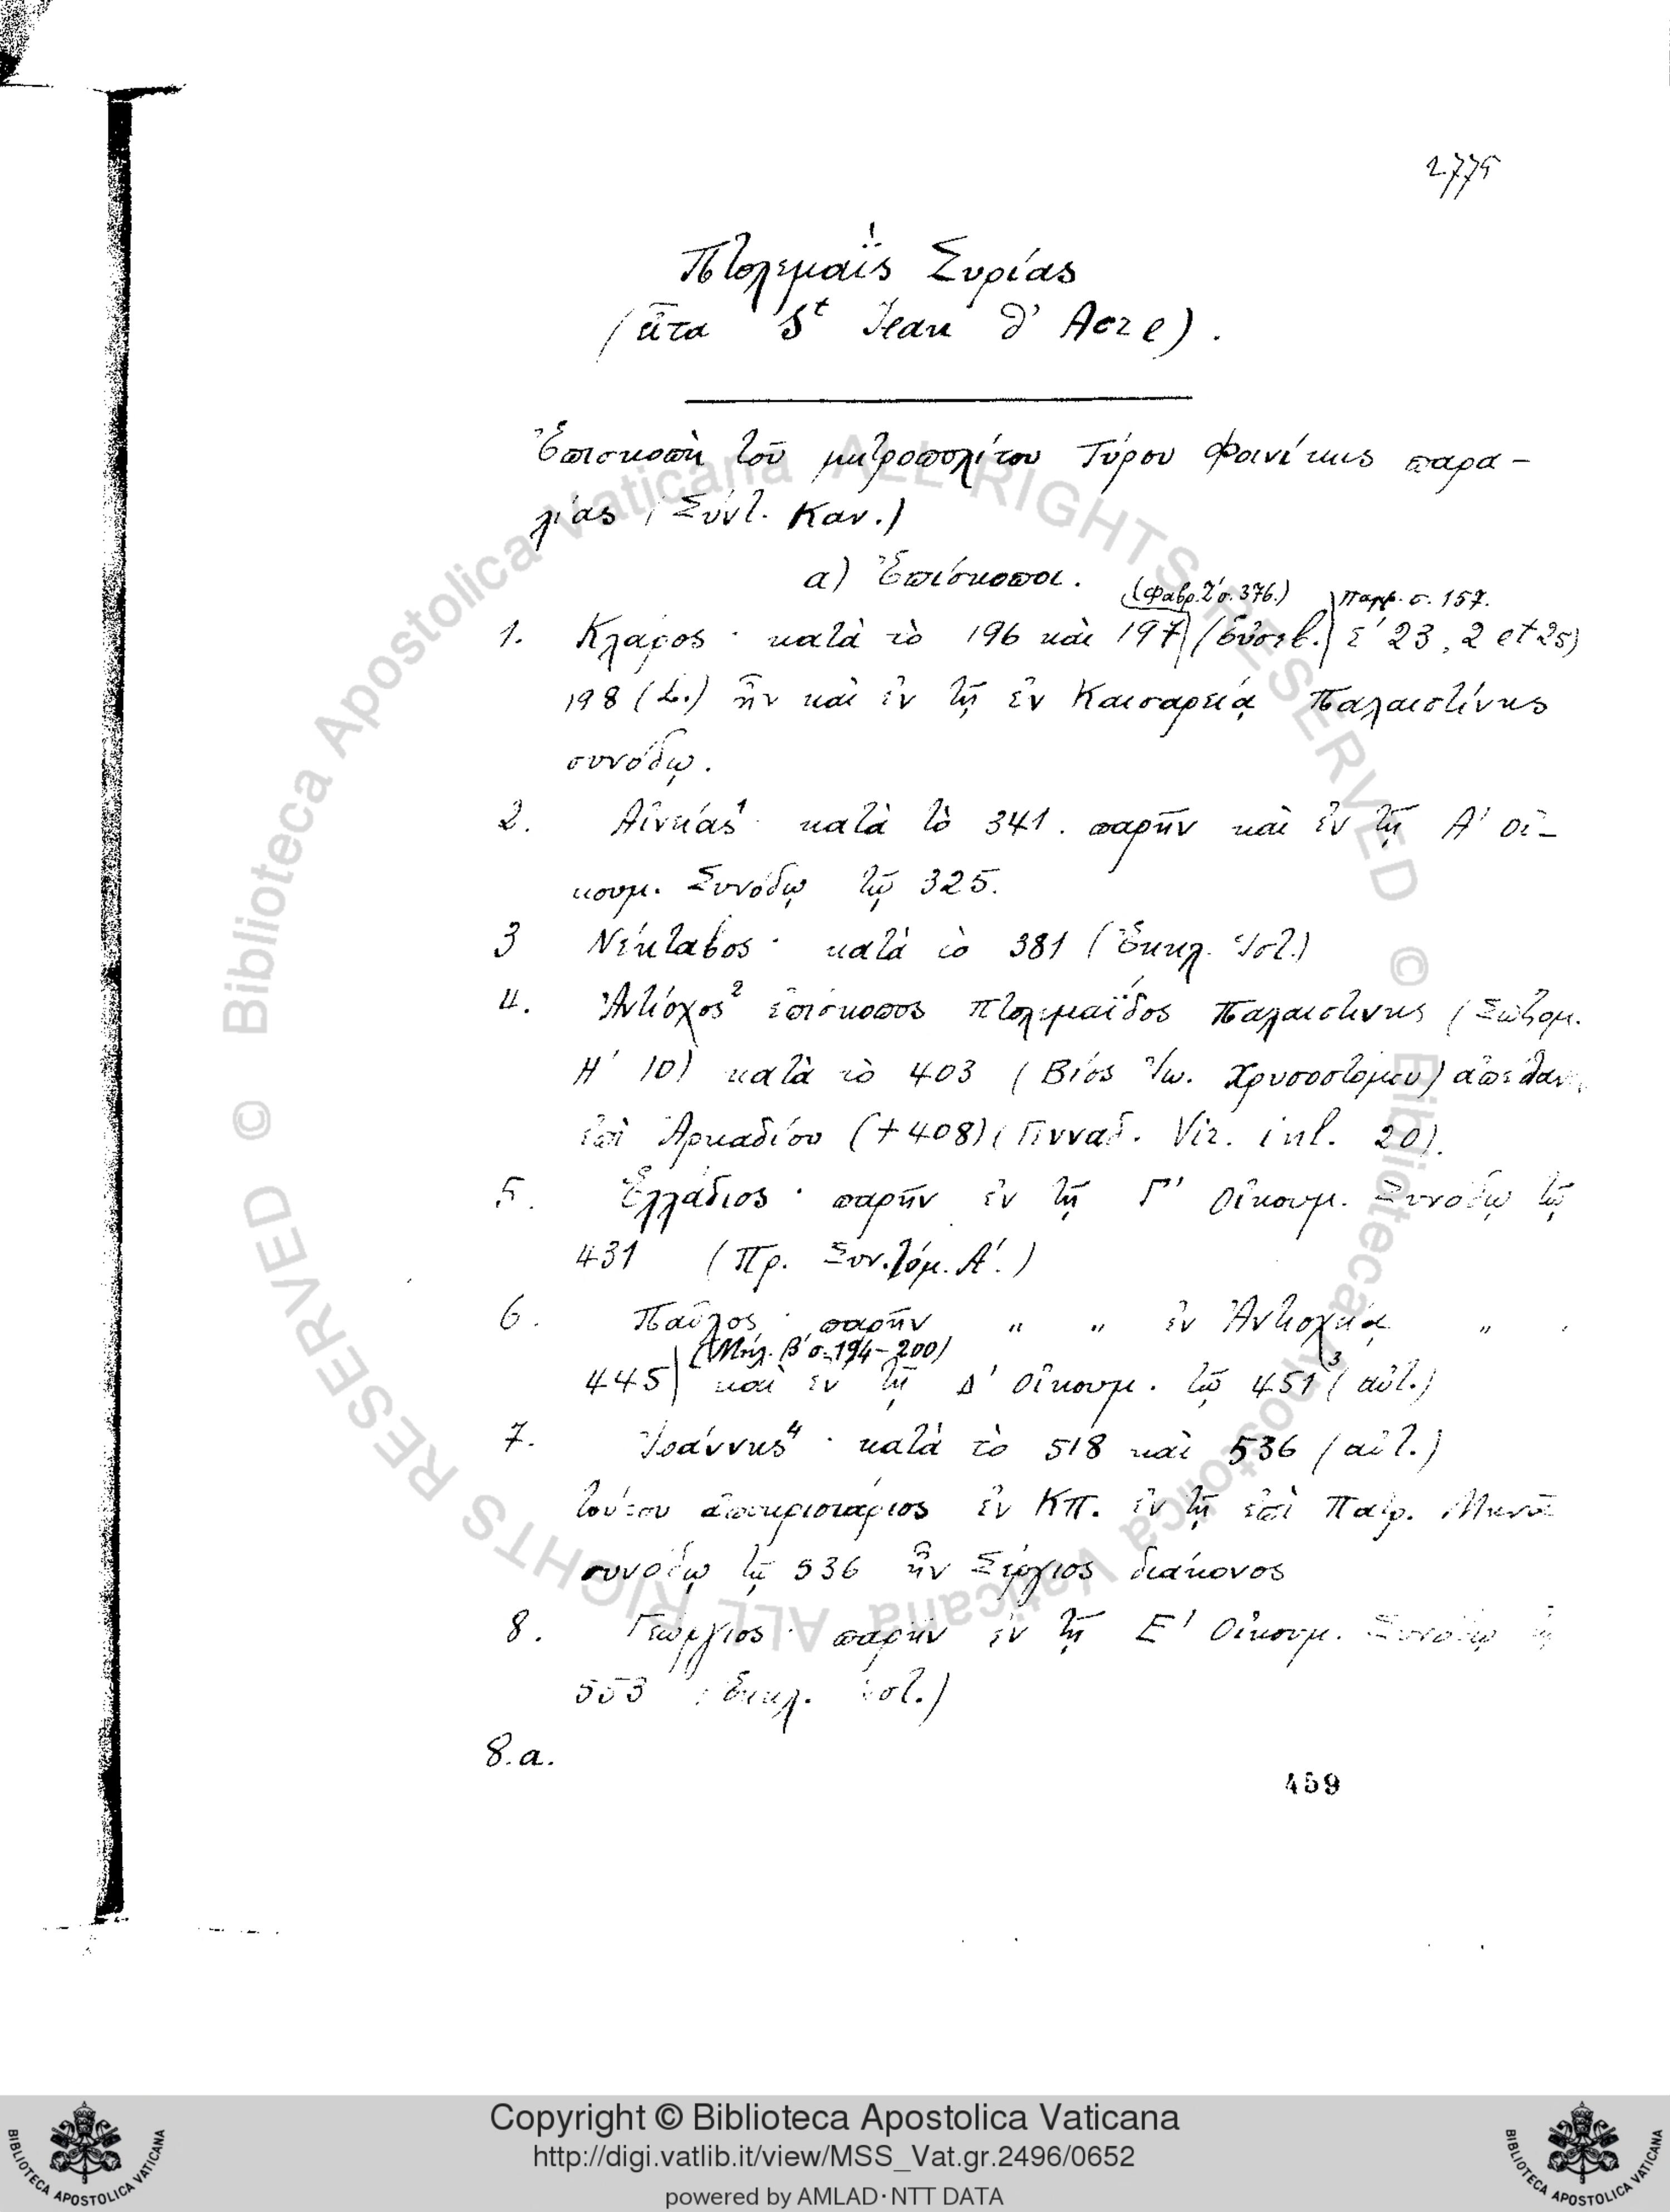 2775
Πτολεμαΐς Συρίας
(εἶτα St Jean d' Acre).
Ἐπισκοπὴ τοῦ μητροπολίτου Τύρου Φοινίκης παρα-
λίας (Σύντ. Καν.)
α) Ἐπίσκοποι.
(Φαβρ. Ζ' σ. 376.) Παμφ. σ. 157.
1. Κλάρος · κατὰ τὸ 196 καὶ 197 (Εὐσεβ. Ε' 23, 2 et 25)
198 (L.) ἦν καὶ ἐν τῇ ἐν Καισαρείᾳ Παλαιστίνης
συνόδῳ.
2. Αἰνείας1 · κατὰ τὸ 341. παρῆν καὶ ἐν τῇ Α' Οἰ-
κουμ. Συνόδῳ τῷ 325.
3 Νέκταβος · κατὰ τὸ 381 (Ἐκκλ. Ἱστ.)
4. Ἀντίοχος2 ἐπίσκοπος Πτολεμαΐδος Παλαιστίνης (Σωζομ.
Η' 10) κατὰ τὸ 403 (Βίος Ἰω. Χρυσοστόμου) ἀπέθαν
ἐπὶ Ἀρκαδίου (+408) (Γενναδ. Vir. inl. 20).
5. Ἑλλάδιος · παρῆν ἐν τῇ Γ' Οἰκουμ. Συνόδῳ τῷ
431 (Πρ. Συν. τόμ. Α'.)
6. Παῦλος · παρῆν " " ἐν Ἀντιοχείᾳ "
(Μηλ. Β' σ. 194-200)
445 καὶ ἐν τῇ Δ' Οἰκουμ. τῷ 451 3 (αὐτ.)
7. Ἰωάννης4 · κατὰ τὸ 518 καὶ 536 (αὐτ.)
τούτου ἀποκρισιάριος ἐν Κπ. ἐν τῇ ἐπὶ Πατρ. Μηνᾶ
συνόδῳ τῷ 536 ἦν Σέργιος διάκονος
8. Γεώργιος · παρῆν ἐν τῇ Ε' Οἰκουμ. Συνόδῳ τῷ
553 (Ἐκκλ. Ἱστ.)
8.α.
459
© Biblioteca Apostolica Vaticana ALL RIGHTS RESERVED © Biblioteca Apostolica Vaticana ALL RIGHTS RESERVED
Copyright © Biblioteca Apostolica Vaticana
http://digi.vatlib.it/view/MSS_Vat.gr.2496/0652
powered by AMLAD·NTT DATA
BIBLIOTECA APOSTOLICA VATICANA
BIBLIOTECA APOSTOLICA VATICANA